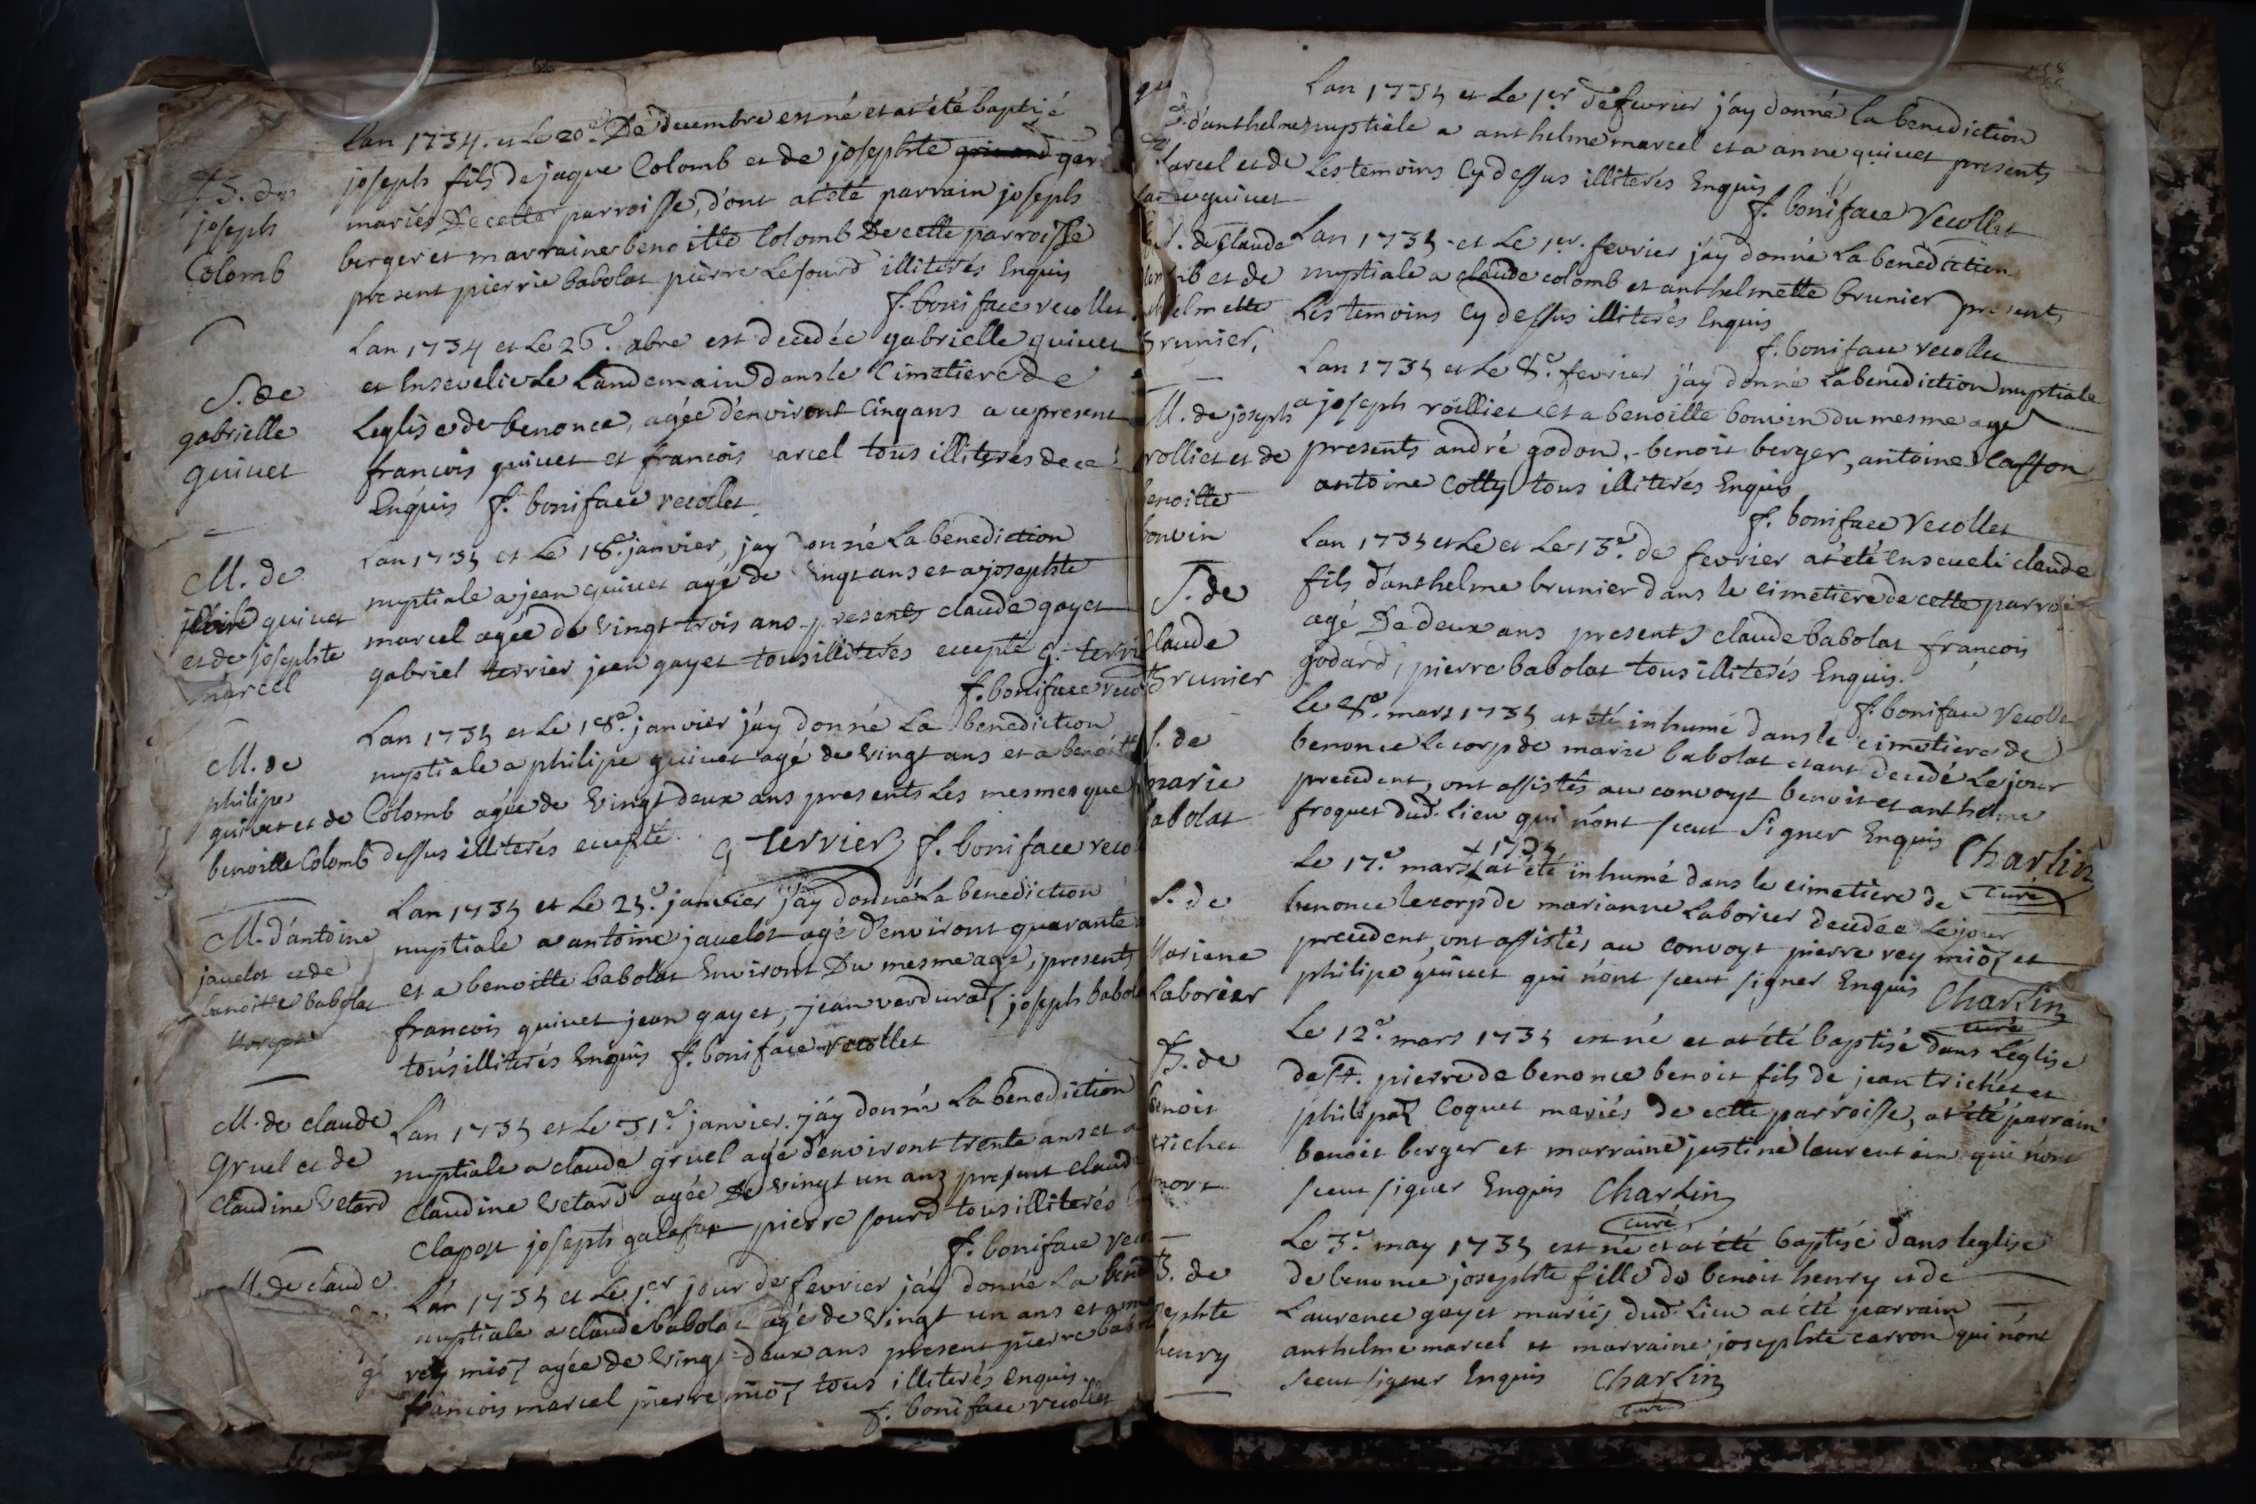 B. de
joseph
Colomb
Lan 1734. et Le 20e. De decembre est né et at'été baptisé
joseph fils de jaque Colomb et de josephte
mariés De cette parroisse, d'ont at'été parrain joseph
berger et marraine benoitte Colomb De cette parroisse
present pierre babolat pierre Lesourd illiterés Enquis
f. boniface recollet
S. de
gabrielle
guiuet
Lan 1734 et Le 26e. abre est decedée gabrielle guiuet
et Enseuelie Le Landemain dans le Cimetiere de
Leglise de benonce, agée d'environt Cinq ans a ce present
francois guiuet et francois arcel tous illiterés de ce
Enquis f. boniface recollet
M. de
guiuet
et de josephte
marcel
Lan 1735 et Le 18e. janvier, jay donné La benediction
nuptiale a jean guiuet agé de vingt ans et a josephte
marcel agée de vingt trois ans presents claude gayet
gabriel terrier jean gayet tous illiterés excepté g. terri
f. boniface reco
M. de
philipe
guiuet et de
benoitte Colomb
Lan 1735 et Le 18e. janvier j'ay donné La benediction
nuptiale a philipe guiuet agé de vingt ans et a benoitte
Colomb agée de vingt deux ans presents Les mesmes que
dessus illiterés excepté. g terrier f. boniface reco
M. d'antoine
jauelot et de
benoitte babolat
Lan 1735 et Le 25e. janvier j'ay donné La benediction
nuptiale a antoine jauelot agé d'environt quarante
et a benoitte babolat Environt Du mesme age, presents
francois guiuet jean gayet, jean verdurat joseph babola
tous illiterés Enquis f. boniface recollet
M. de claude
Gruel et de
Claudine Vetard
Lan 1735 et Le 31e. janvier. j'ay donné La benediction
nuptiale a claude gruel agé d'environt trente ans et a
Claudine Vetard agée De vingt un ans present claude
Clapot joseph pierre sourd tous illiterés
f. boniface reco
M. de claude
Lan 1735 et Le 1er jour de fevrier j'ay donné La bene
nuptiale a claude babolat agé de vingt un ans et
rey mioz agée de vingt deux ans present pierre babol
francois marcel pierre mioz tous illiterés enquis.
f. boniface recollet
d'anthelme
Marcel et de
guiuet
Lan 1735 et Le 1er de fevrier j'ay donné La benediction
nuptiale a anthelme marcel et a anne guiuet presents
Les temoins Cy dessus illiterés Enquis
f. boniface Recollet
de Claude
mb et de
elmette
Brunier.
Lan 1735 et Le 1er. fevrier j'ay donné La benediction
nuptiale a claude colomb et anthelmette brunier presents
Les temoins Cy dessus illiterés Enquis
f. boniface recollet
M. de joseph
rolliet et de
benoitte
bouvin
Lan 1735 et Le 8e. fevrier j'ay donné La benediction nuptiale
a joseph rolliet et a benoitte bouvin du mesme age
presents andré godon, benoit berger, antoine Caston
antoine Cotty tous illiterés Enquis
f. boniface Recollet
S. de
Claude
Brunier
Lan 1735 et Le et Le 13e. de fevrier at'été Enseueli claude
fils d'anthelme brunier dans le cimetiere de cette parrois
agé De deux ans presents claude babolat francois
godard, pierre babolat tous illiterés Enquis.
f. boniface Recolle
S. de
marie
babolat
Le 8e. mars 1735 at été inhumé dans le cimetiere de
benonce Le corp de marie babolat etant decedé Le jour
precedent, ont assistés au convoyt benoit et anthelme
froquet dud. Lieu qui n'ont sceut Signer Enquis Charlin
curé
S. de
Mariane
Laborier
1735
Le 17e. mars at été inhumé dans le cimetiere de
benonce le corp de marianne Laborier decedée Le jour
precedent, ont assistés au convoyt pierre rey mioz et
philipe guiuet qui n'ont sceut signer Enquis Charlin
curé
B. de
benoit
trichet
mort
Le 12e. mars 1735 est né et at'été baptisé dans Leglise
de st. pierre de benonce benoit fils de jean trichet et
philipaz Coquet mariés de cette parroisse, at'été parrain
benoit berger et marraine justine laurent ein qui n'ont
sceut signer Enquis Charlin
curé
B. de
josephte
henry
Le 3e. may 1735 est né et at été baptisé dans leglise
de benonce josephte fille de benoit henry et de
Laurence gayet mariés dud. Lieu at'été parrain
anthelme marcel et marraine josephte carron qui n'ont
sceut signer Enquis Charlin
curé